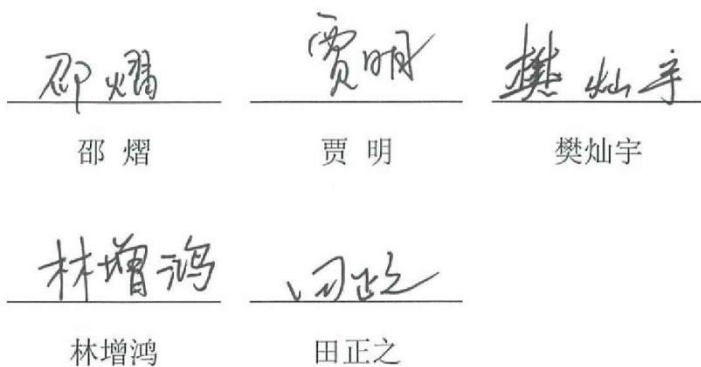 邵熠 贾明 樊灿宇
邵 熠 贾 明 樊灿宇
林增鸿 田正之
林增鸿 田正之